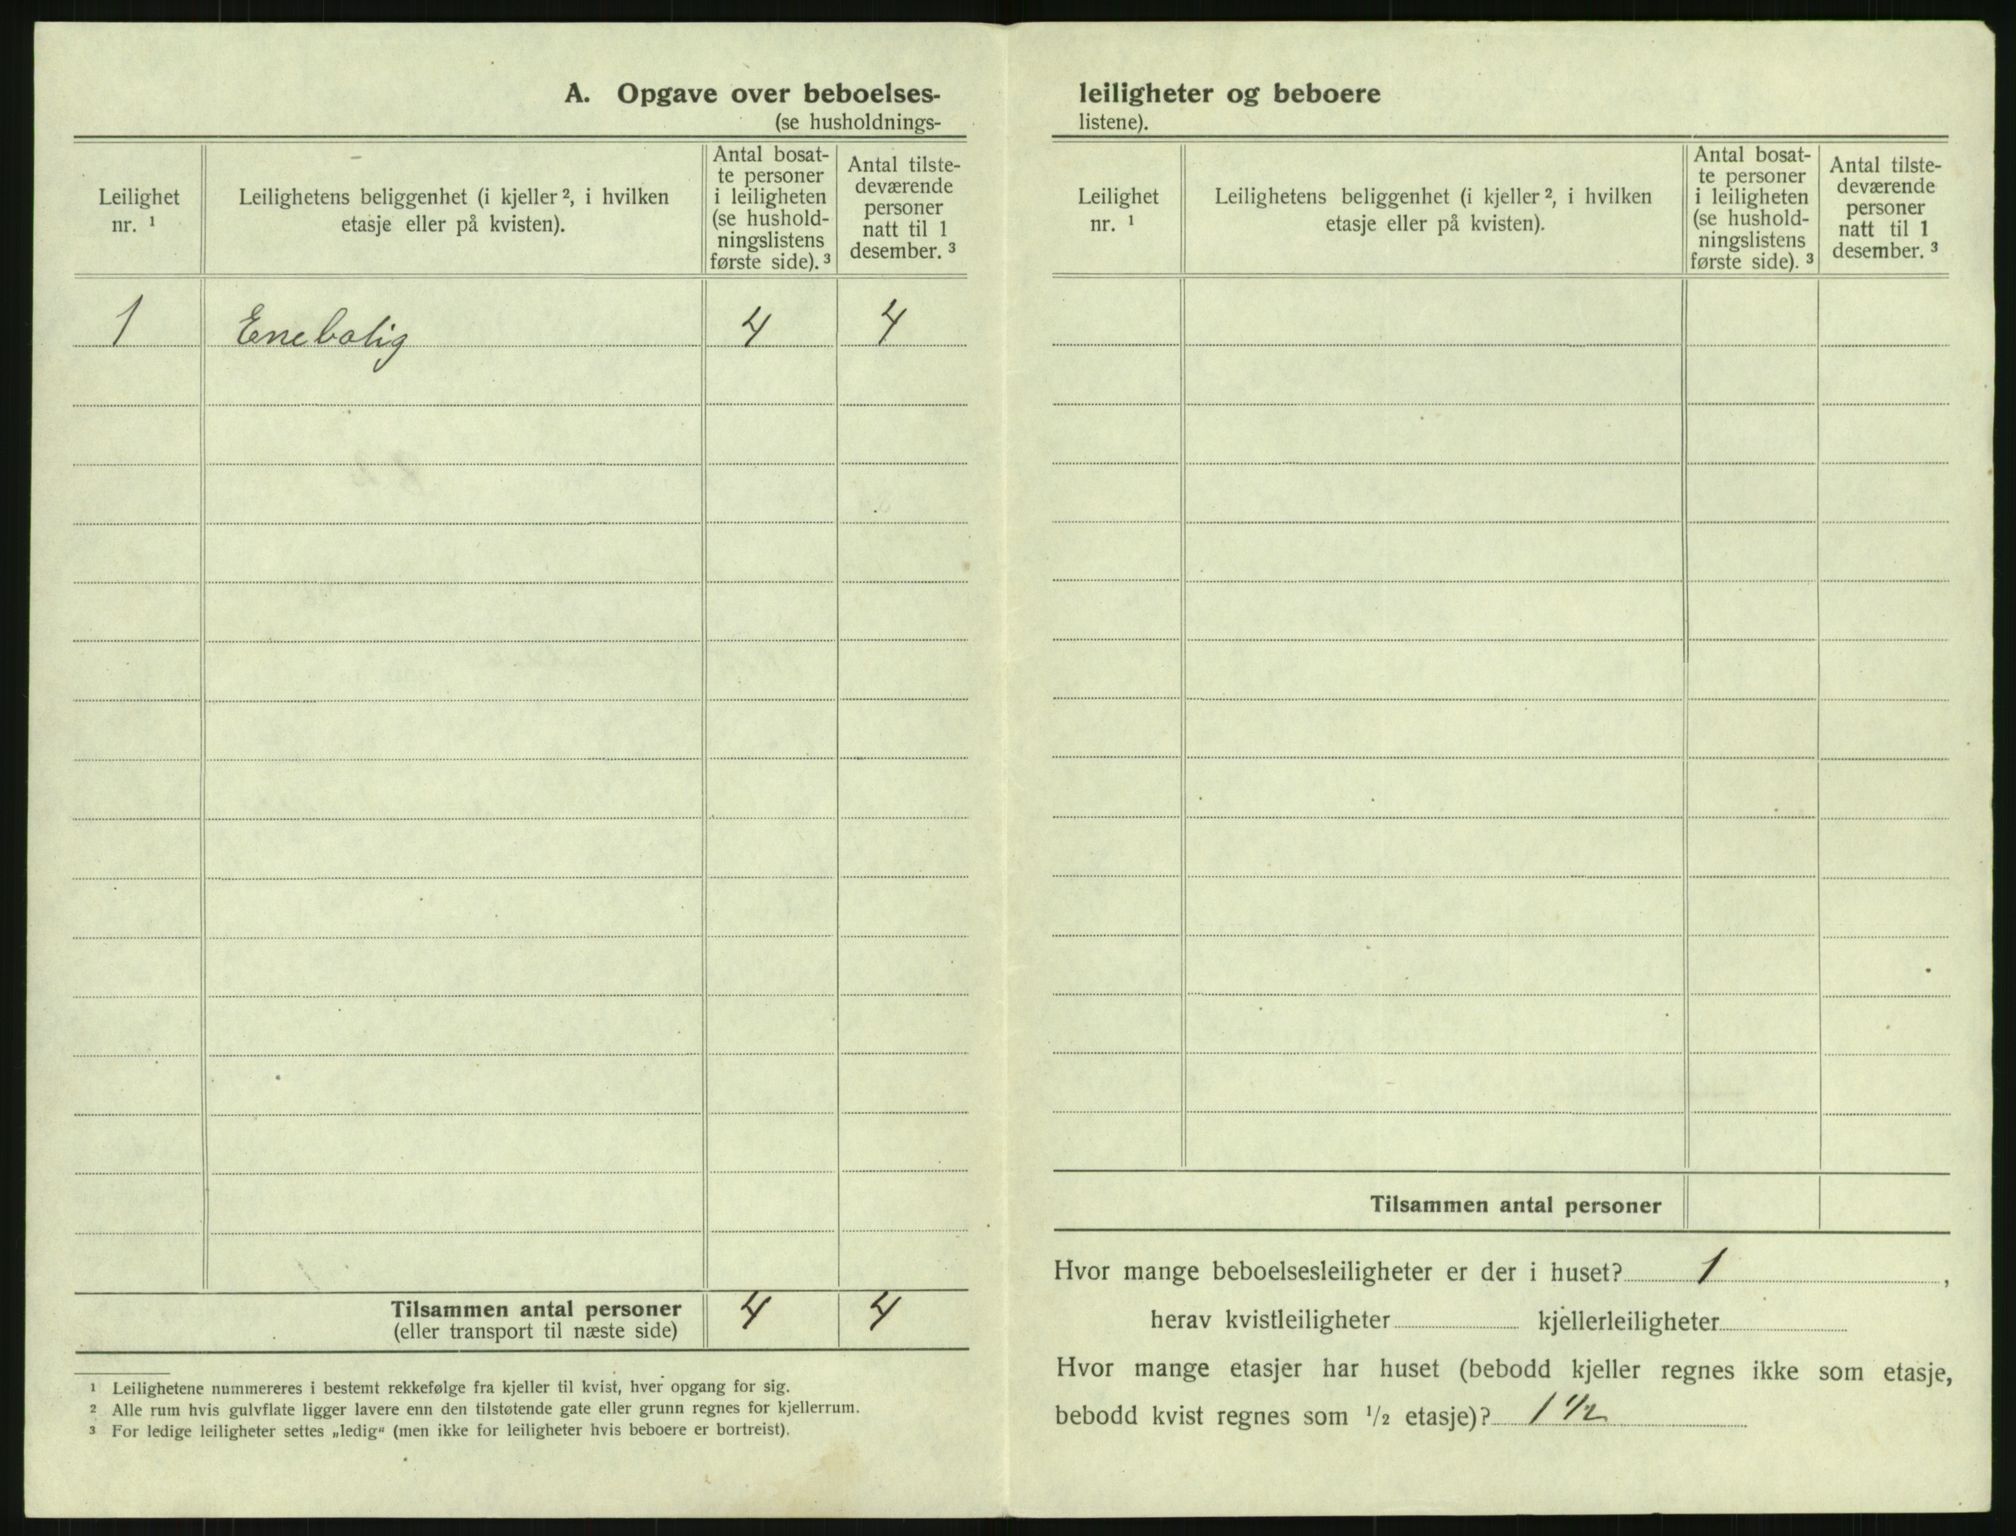 A. Opgave over beboelses-
(se husholdnings-
Leilighet
nr. ¹
Leilighetens beliggenhet (i kjeller ², i hvilken
etasje eller på kvisten).
Antal bosat-
te personer
i leiligheten
(se hushold-
ningslistens
første side). ³
Antal tilste-
deværende
personer
natt til 1
desember. ³
1 Enebolig 4 4
Tilsammen antal personer 4 4
(eller transport til næste side)
¹ Leilighetene nummereres i bestemt rekkefølge fra kjeller til kvist, hver opgang for sig.
² Alle rum hvis gulvflate ligger lavere enn den tilstøtende gate eller grunn regnes for kjellerrum.
³ For ledige leiligheter settes „ledig“ (men ikke for leiligheter hvis beboere er bortreist).
leiligheter og beboere
listene).
Leilighet
nr. ¹
Leilighetens beliggenhet (i kjeller ², i hvilken
etasje eller på kvisten).
Antal bosat-
te personer
i leiligheten
(se hushold-
ningslistens
første side). ³
Antal tilste-
deværende
personer
natt til 1
desember. ³
Tilsammen antal personer
Hvor mange beboelsesleiligheter er der i huset? 1 ,
herav kvistleiligheter kjellerleiligheter
Hvor mange etasjer har huset (bebodd kjeller regnes ikke som etasje,
bebodd kvist regnes som ¹/₂ etasje)? 1 ½